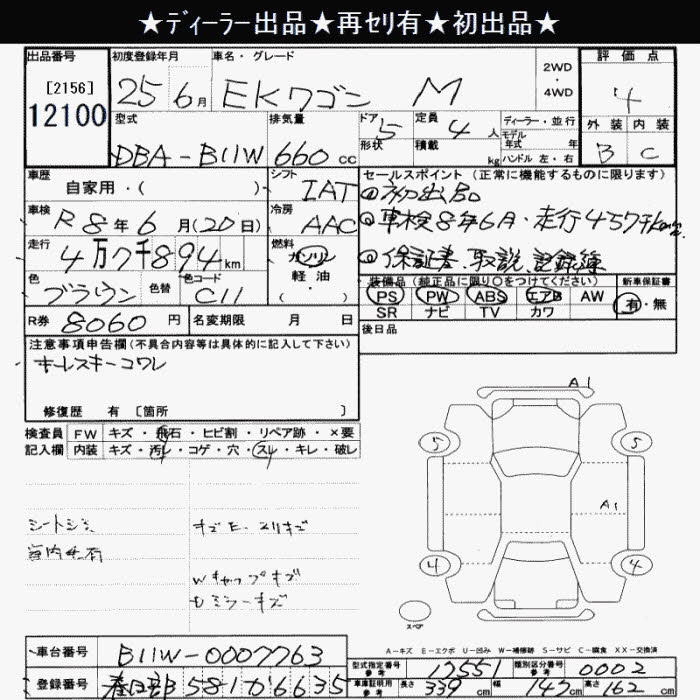 ★ディーラー出品★再セリ有★初出品★
出品番号 初度登録年月 車名・グレード 2WD・4WD 評価点
[2156] 12100 25年6月 EKワゴン M 4
型式 排気量 ドア 5 定員 4人 ディーラー・並行 外装 内装
DBA-B11W 660cc 形状 積載 kg モデル年式 年 ハンドル 左・右 B C
車歴 シフト セールスポイント (正常に機能するものに限ります)
自家用・( ) IAT ①初出品
車検 R8年6月(20日) 冷房 AAC ②車検8年6月・走行4.5万km
走行 4万7千894km 燃料 ガソリン 軽油・( ) ③保証書、取説、記録簿
色 ブラウン 色替 色コード C11
装備品 (純正品に限り○をつけてください) 新車保証書
PS PW ABS エアB AW 有・無
SR ナビ TV カワ
R券 8060円 名変期限 月 日 後日品
注意事項申告欄 (不具合内容等は具体的に記入して下さい)
キーレスキーコワレ
修復歴 有 [箇所 ]
検査員 FW キズ・飛石・ヒビ割・リペア跡・×要
記入欄 内装 キズ・汚レ・コゲ・穴・スレ・キレ・破レ
A1
5 5
A1
4 4
スペア
シートシミ
室内ヨゴレ有
キズE.スリキズ
Wキャップキズ
ドミラーキズ
A-キズ E-エクボ U-凹み W-補修跡 S-サビ C-腐食 XX-交換済
車台番号 B11W-0007763 型式指定番号 参考 17551 類別区分番号 参考 0002
登録番号 春日部 581 か 6635 車庫証明用 参考 長さ 339cm 幅 147cm 高さ 162cm